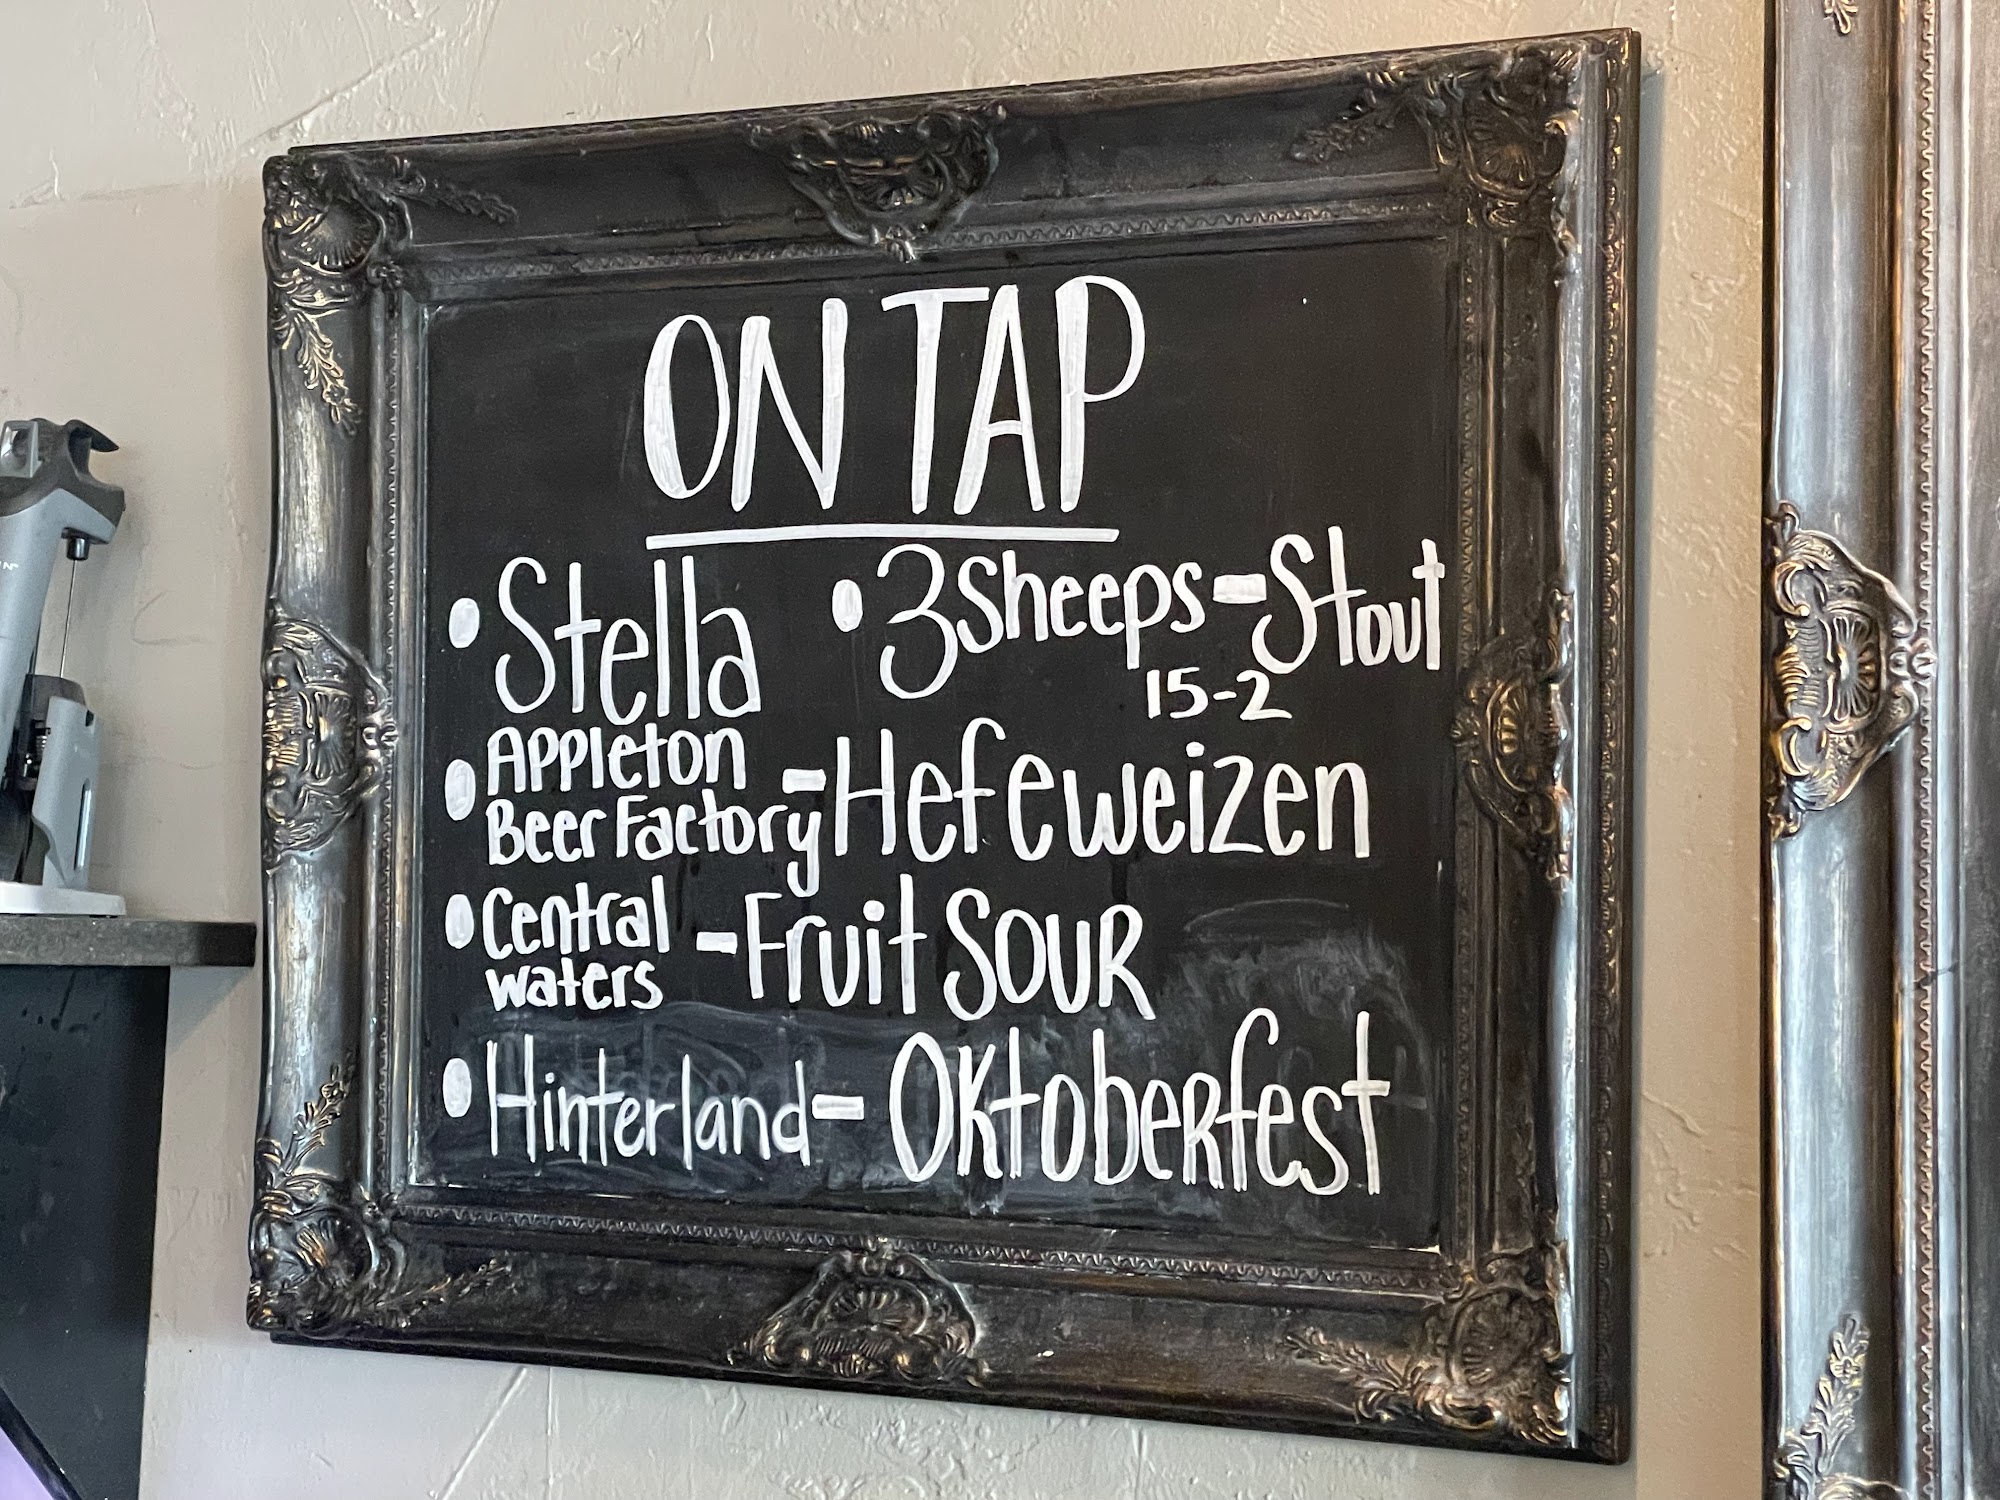 ON TAP
• Stella • 3 Sheeps - Stout
15-2
• Appleton
Beer Factory - Hefeweizen
• Central
Waters - Fruit Sour
• Hinterland - Oktoberfest